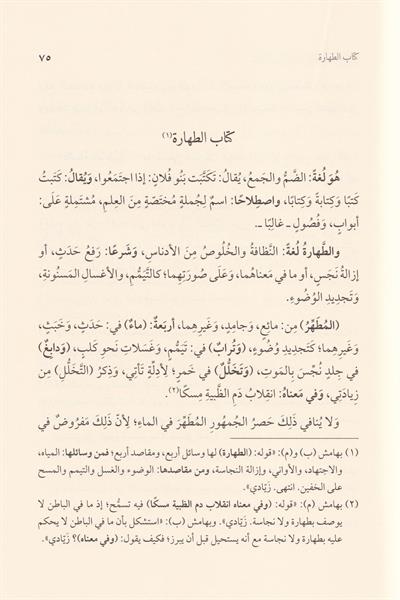 كتاب الطهارة ٧٥
كتاب الطهارة(١)
هُوَ لُغةً: الضَّمُّ والجَمعُ، يُقالُ: تَكَتَّبَت بَنُو فُلانٍ: إذا اجتَمَعُوا، وَيُقالُ: كَتَبتُ
كَتبًا وَكِتابةً وَكِتابًا، واصطِلاحًا: اسمٌ لِجُملةٍ مُختَصّةٍ مِنَ العِلمِ، مُشتَمِلةٍ عَلَى:
أبوابٍ، وَفُصُولٍ ـ غالِبًا ـ.
والطَّهارةُ لُغةً: النَّظافةُ والخُلُوصُ مِنَ الأدناسِ، وَشَرعًا: رَفعُ حَدَثٍ، أو
إزالةُ نَجَسٍ، أو ما في مَعناهُما، وَعَلَى صُورَتِهِما؛ كالتَّيَمُّمِ، والأغسالِ المَسنُونةِ،
وَتَجدِيدِ الوُضُوءِ.
(المُطَهِّرُ) مِن: مائِعٍ، وَجامِدٍ، وَغَيرِهِما، أربَعةٌ: (ماءٌ) في: حَدَثٍ، وَخَبَثٍ،
وَغَيرِهِما؛ كَتَجدِيدِ وُضُوءٍ، (وَتُرابٌ) في: تَيَمُّمٍ، وَغَسَلاتِ نَحوِ كَلبٍ، (وَدابِغٌ)
في جِلدٍ نُجِّسَ بِالمَوتِ، (وَتَخَلُّلٌ) في خَمرٍ؛ لِأدِلّةٍ تَأتِي، وَذِكرُ (التَّخَلُّلِ) مِن
زِيادَتِي، وَفي مَعناهُ: انقِلابُ دَمِ الظَّبيةِ مِسكًا(٢).
وَلا يُنافي ذَلِكَ حَصرُ الجُمهُورِ المُطَهِّرَ في الماءِ؛ لِأنَّ ذَلِكَ مَفرُوضٌ في
(١) بهامش (ب) و(م): «قوله: (الطهارة) لها وسائل أربع، ومقاصد أربع؛ فمن وسائلها: المياه،
والاجتهاد، والأواني، وإزالة النجاسة، ومن مقاصدها: الوضوء والغسل والتيمم والمسح
على الخفين. انتهى. زَيّادي».
(٢) بهامش (م): «قوله: (وفي معناه انقلاب دم الظبية مسكًا) فيه تسمُّح؛ إذ ما في الباطن لا
يوصف بطهارة ولا نجاسة. زَيّادي». وبهامش (ب): «استشكل بأن ما في الباطن لا يحكم
عليه بطهارة ولا نجاسة مع أنه يستحيل قبل أن يبرز؛ فكيف يقول: (وفي معناه)؟ زَيّادي».